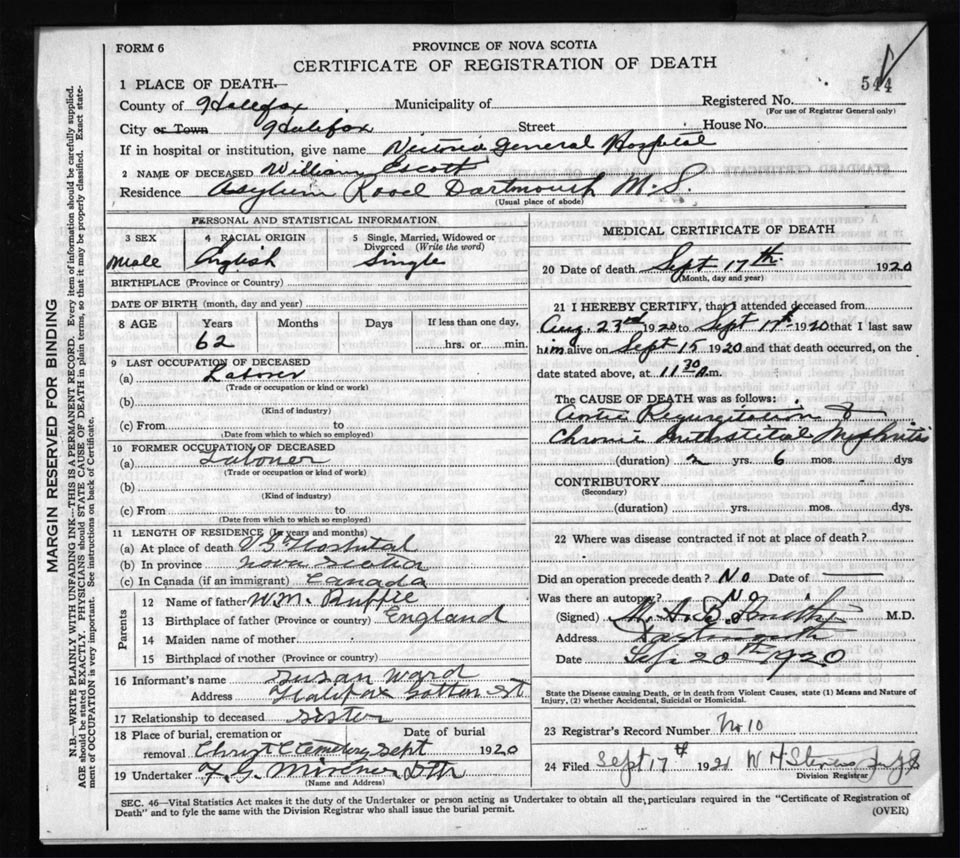 FORM 6
PROVINCE OF NOVA SCOTIA
CERTIFICATE OF REGISTRATION OF DEATH
544
1 PLACE OF DEATH.—
County of Halifax Municipality of Registered No.
(For use of Registrar General only)
City or Town Halifax Street House No.
If in hospital or institution, give name Victoria General Hospital
2 NAME OF DECEASED William Escott
Residence Asylum Road Dartmouth N.S.
(Usual place of abode)
PERSONAL AND STATISTICAL INFORMATION
3 SEX 4 RACIAL ORIGIN 5 Single, Married, Widowed or Divorced (Write the word)
Male English Single
BIRTHPLACE (Province or Country)
DATE OF BIRTH (month, day and year)
8 AGE Years Months Days If less than one day,
62 hrs. or min.
9 LAST OCCUPATION OF DECEASED
(a) Laborer
(Trade or occupation or kind of work)
(b)
(Kind of industry)
(c) From to
(Date from which to which so employed)
10 FORMER OCCUPATION OF DECEASED
(a) Laborer
(Trade or occupation or kind of work)
(b)
(Kind of industry)
(c) From to
(Date from which to which so employed)
11 LENGTH OF RESIDENCE (In years and months)
(a) At place of death V G Hospital
(b) In province Nova Scotia
(c) In Canada (if an immigrant) Canada
Parents
12 Name of father Wm.
13 Birthplace of father (Province or country) England
14 Maiden name of mother
15 Birthplace of mother (Province or country)
16 Informant's name Susan Ward
Address Halifax St.
17 Relationship to deceased Sister
18 Place of burial, cremation or Date of burial
removal Christ Cemetery Sept 1920
19 Undertaker
(Name and Address)
MEDICAL CERTIFICATE OF DEATH
20 Date of death Sept 17th 1920
(Month, day and year)
21 I HEREBY CERTIFY, that I attended deceased from
Aug. 23rd 1920 to Sept 17th 1920 that I last saw
him alive on Sept 15 1920 and that death occurred, on the
date stated above, at 11 30 A.m.
The CAUSE OF DEATH was as follows:
Aortic Regurgitation &
Chronic Interstitial Nephritis
(duration) 2 yrs. 6 mos. dys
CONTRIBUTORY
(Secondary)
(duration) yrs. mos. dys.
22 Where was disease contracted if not at place of death?
Did an operation precede death? No Date of
Was there an autopsy? No
(Signed) M. A. B. Smith M.D.
Address Dartmouth
Date Sep 20th 1920
State the Disease causing Death, or in death from Violent Causes, state (1) Means and Nature of
Injury, (2) whether Accidental, Suicidal or Homicidal.
23 Registrar's Record Number No 10
24 Filed Sept 17th 1921 W H Stevens
Division Registrar
SEC. 46—Vital Statistics Act makes it the duty of the Undertaker or person acting as Undertaker to obtain all the particulars required in the "Certificate of Registration of
Death" and to fyle the same with the Division Registrar who shall issue the burial permit.
(OVER)
MARGIN RESERVED FOR BINDING
N.B.—WRITE PLAINLY WITH UNFADING INK—THIS IS A PERMANENT RECORD. Every item of information should be carefully supplied.
AGE should be stated EXACTLY. PHYSICIANS should STATE CAUSE OF DEATH in plain terms, so that it may be properly classified. Exact statement of OCCUPATION is very important. See instructions on back of Certificate.